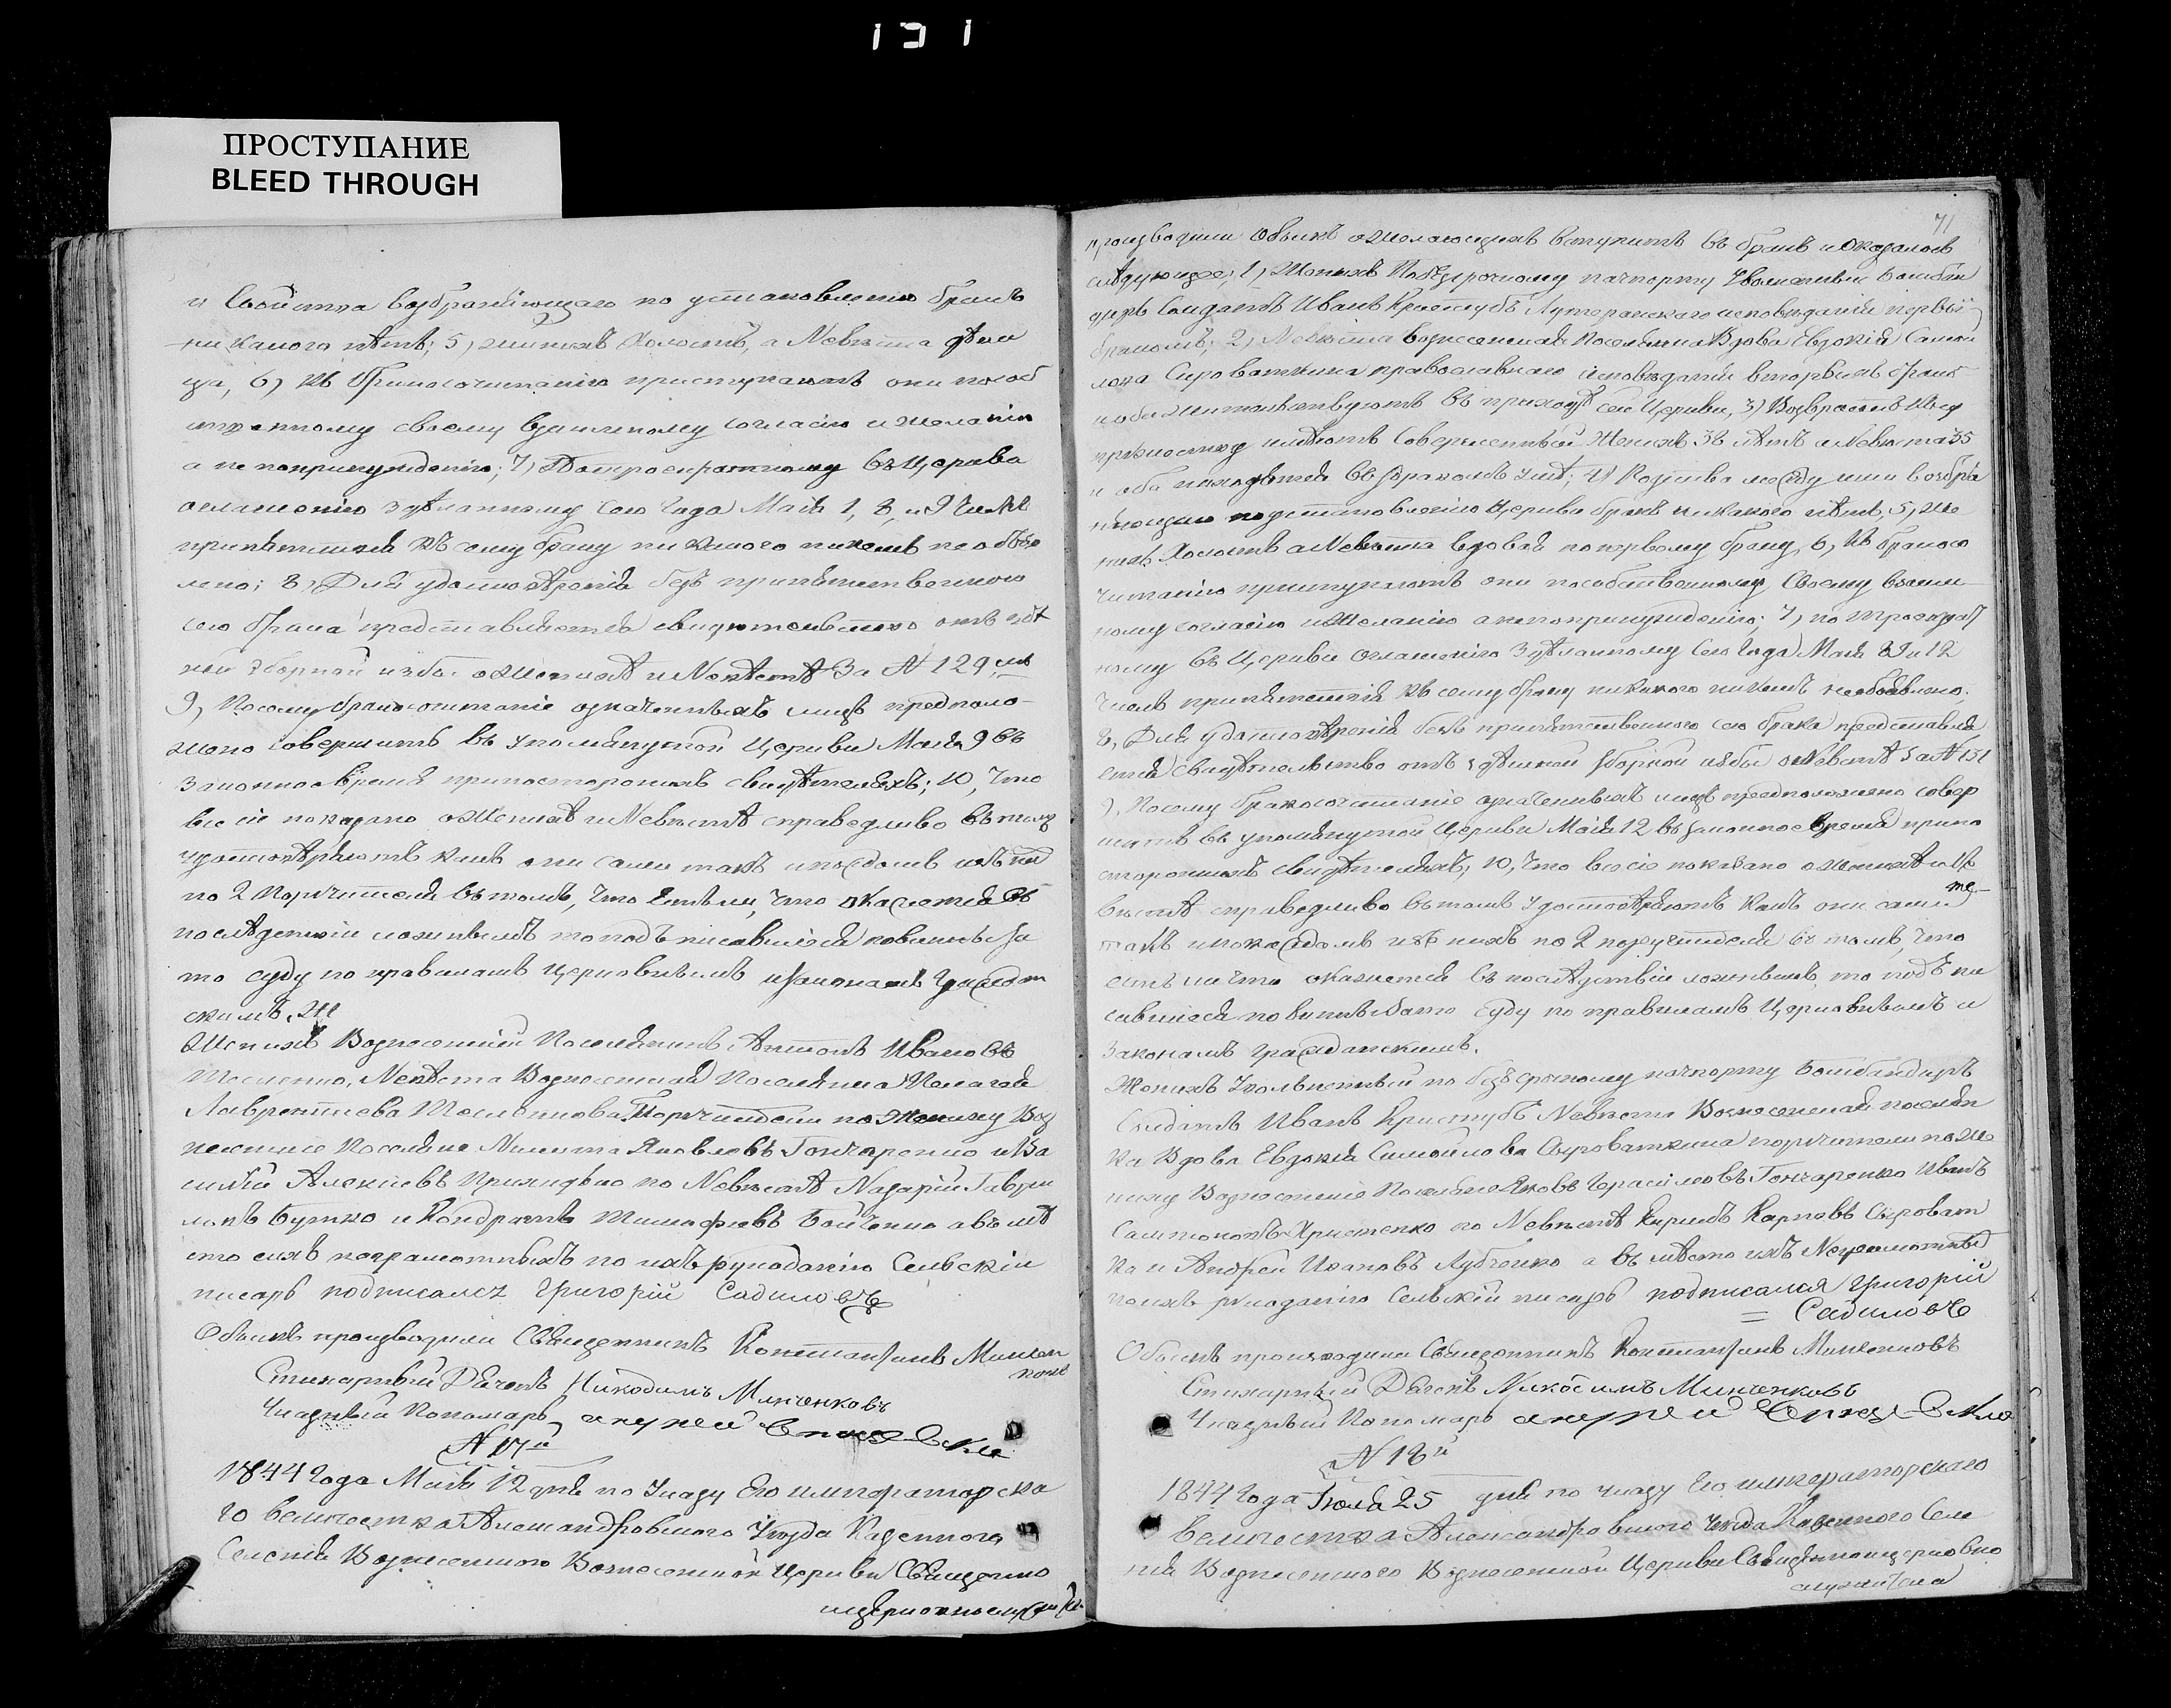 131
ПРОСТУПАНИЕ
BLEED THROUGH
и свойства возбраняющаго по установлению бракъ
никакого нѣтъ; 5, женихъ холостъ, а Невѣста дѣви
ца, 6, къ бракосочитанію приступаютъ они пособ
ственному своему взаимному согласію и желанію
а не попринужденію; 7, Потроекратному въ Церкве
оглашенію здѣланному сего Года Маія 1, 8, и 9 числъ
припятствія къ сему браку никакого никемъ не объяв
лено; 8, Для удостовѣренія безъ припятственнаго
сего брака представляется свидетельство отъ здѣ
ней зборной избы о Женихѣ и Невѣстѣ За № 129 мъ
9, Посему бракосочитаніе означенныхъ лицъ предполо-
жено совершить въ упомянутой Церкви Маія 9 въ
законное время припостороннихъ свидѣтеляхъ; 10, Что
все сіе показано о Женихѣ и Невѣстѣ справедливо въ томъ
удостовѣряютъ какъ они сами такъ и покаждомъ изъ нихъ
по 2 поручителя въ томъ, что естьли, что окажется въ
послѣдствіи ложнымъ то подъписавшіеся повинны за
то суду по правиламъ Церковнымъ и законамъ Граждан
скимъ. Же
Женихъ Вознесенскій Поселянинъ Антонъ Ивановъ
Невѣста Вознесенская Поселянка Пелагея
Лаврентіева Поручители по Жениху Воз
несенские Поселяне Никита Яковлевъ Гончаренко и Ва
силій Алексіевъ по Невѣстѣ Назарій Гаври
ловъ Бутко и Кондратъ Тимофѣевъ Бойченко авъмѣ
сто сихъ неграмотныхъ по ихъ рукоданію Сельскій
писарь подписался Григорій Садиловъ
Обыскъ производили Священникъ Константинъ Минчен
ковъ
Стихарный Дьячекъ Никодимъ Минченковъ
Указный Пономарь
№ 17й
1844 Года Маія 12 дня по Указу Его императорска
го величества Александровского Уезда Казенного
Селенія Вознесенского Вознесенской Церкви Священно
ицерковнослужители
71
производили обыскъ ожелающихъ вступить въ бракъ и оказалось
слѣдующее; 1, Женихъ Побезсрочному пачпорту Уволенный бомбан
диръ Солдатъ Иванъ Криступъ Лутеранскаго исповѣданія первый
бракомъ; 2, Невѣста вознесенская Поселянка Вдова Евдокія Самой
лова Сыроваткина православнаго исповѣданія вторымъ бракомъ
и оба жительствуютъ въ приходѣ сей Церкви, 3, Возврастъ къ су
пружеству имѣютъ Совершенный Женихъ 38 лѣтъ а Невѣста 35
и оба находятся въ здравомъ умѣ; 4, Родства между ими возбра
няющаго поустановленію Церкви бракъ никакого нѣтъ, 5, Же
нихъ Холостъ а Невѣста вдовая по первому браку, 6, Къ бракосо
читанію приступаютъ они пособственному Своему взаим-
ному согласію и Желанію анепопринужденію; 7, по троекрат
ному въ Церкви оглашенію Здѣланному Сего Года Маія 8 9 и 12
числъ припятствія къ сему браку никакого никемъ необъявлено.
8, Для удостовѣренія безъ припятственнаго сего брака представля
ется свидѣтельство отъ здѣшней зборной избы о Невѣстѣ За № 131
9, Посему бракосочитаніе означенныхъ лицъ предположено совер
шить въ упомянутой Церкви Маія 12 въ законное время припо
стороннихъ свидѣтеляхъ; 10, Что все сіе показано о Женихѣ и Не
вѣстѣ справедливо въ томъ удостовѣряютъ какъ они сами
те-
такъ и покаждомъ изъ нихъ по 2 поручителя въ томъ, что
естьли что окажется въ послѣдствіи ложнымъ, то подъпи
савшіеся повинны зато суду по правиламъ Церковнымъ и
Законамъ гражданскимъ.
Женихъ Увольненный по безъсрочному пачпорту Бомбандиръ
Солдатъ Иванъ Криступъ Невѣста Вознесенская поселян
ка Вдова Евдокія Самойлова Сыроваткина поручители по Же
ниху Вознесенские Поселяне Яковъ Герасимовъ Гончаренко Иванъ
Самсоновъ Христенко по Невѣстѣ Кирилъ Карповъ Сыроват
ка и Андрей Ивановъ Лубченко а въ мѣсто ихъ Неграмотныхъ
поихъ рукоданію Сельскій писарь подписался Григорій
= Садиловъ
Обыскъ производили Священникъ Константинъ Минченковъ
Стихарный Дьячекъ Никодимъ Минченковъ
Указный Пономарь
№ 18й
1844 Года Іюля 25 дня по указу Его императорскаго
величества Александровского Уезда Казенного Селе
нія Вознесенского Вознесенской Церкви Священноицерковно
служители